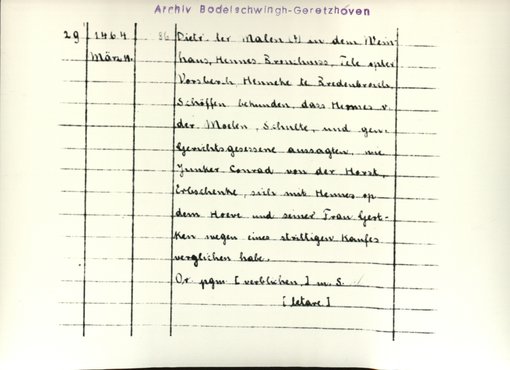 Archiv Bodelschwingh-Geretzhoven
29 1464 36 Dietr. ter Malen (?) in dem Wein
März 11. haus, Hennes Bronchuss, Tele opter
Vorsberch, Henneke te Bredenbroch,
Schöffen bekunden, dass Hermes v.
der Moelen, Schulte, und gen.
Gerichtsgesessene aussagten, wie
Junker Conrad von der Horst,
Erbschenke, sich mit Hennes op
dem Hoeve und seiner Frau Gert-
ken wegen eines strittigen Kaufes
verglichen habe.
Or. pgm [verblichen.] m. S.
[letare.]